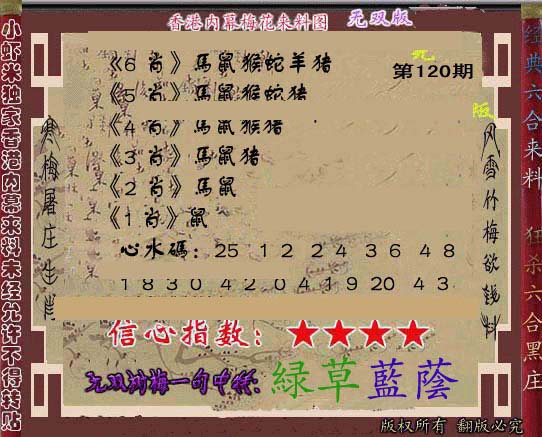 香港内幕梅花来料图 无双版
第120期
《6 肖》馬鼠猴蛇羊猪
《5 肖》馬鼠猴蛇猪
《4 肖》馬鼠猴猪
《3 肖》馬鼠猪
《2 肖》馬鼠
《1 肖》鼠
心水碼：25 12 24 36 48
18 30 42 04 19 20 43
信心指数：★★★★
无双狗梅一句中特:綠草藍蔭
版权所有 翻版必究
小虾米独家香港内幕来料未经允许不得转贴
寒梅屠庄生肖
风雪竹梅欲钱料
经典六合来料 狂杀六合黑庄